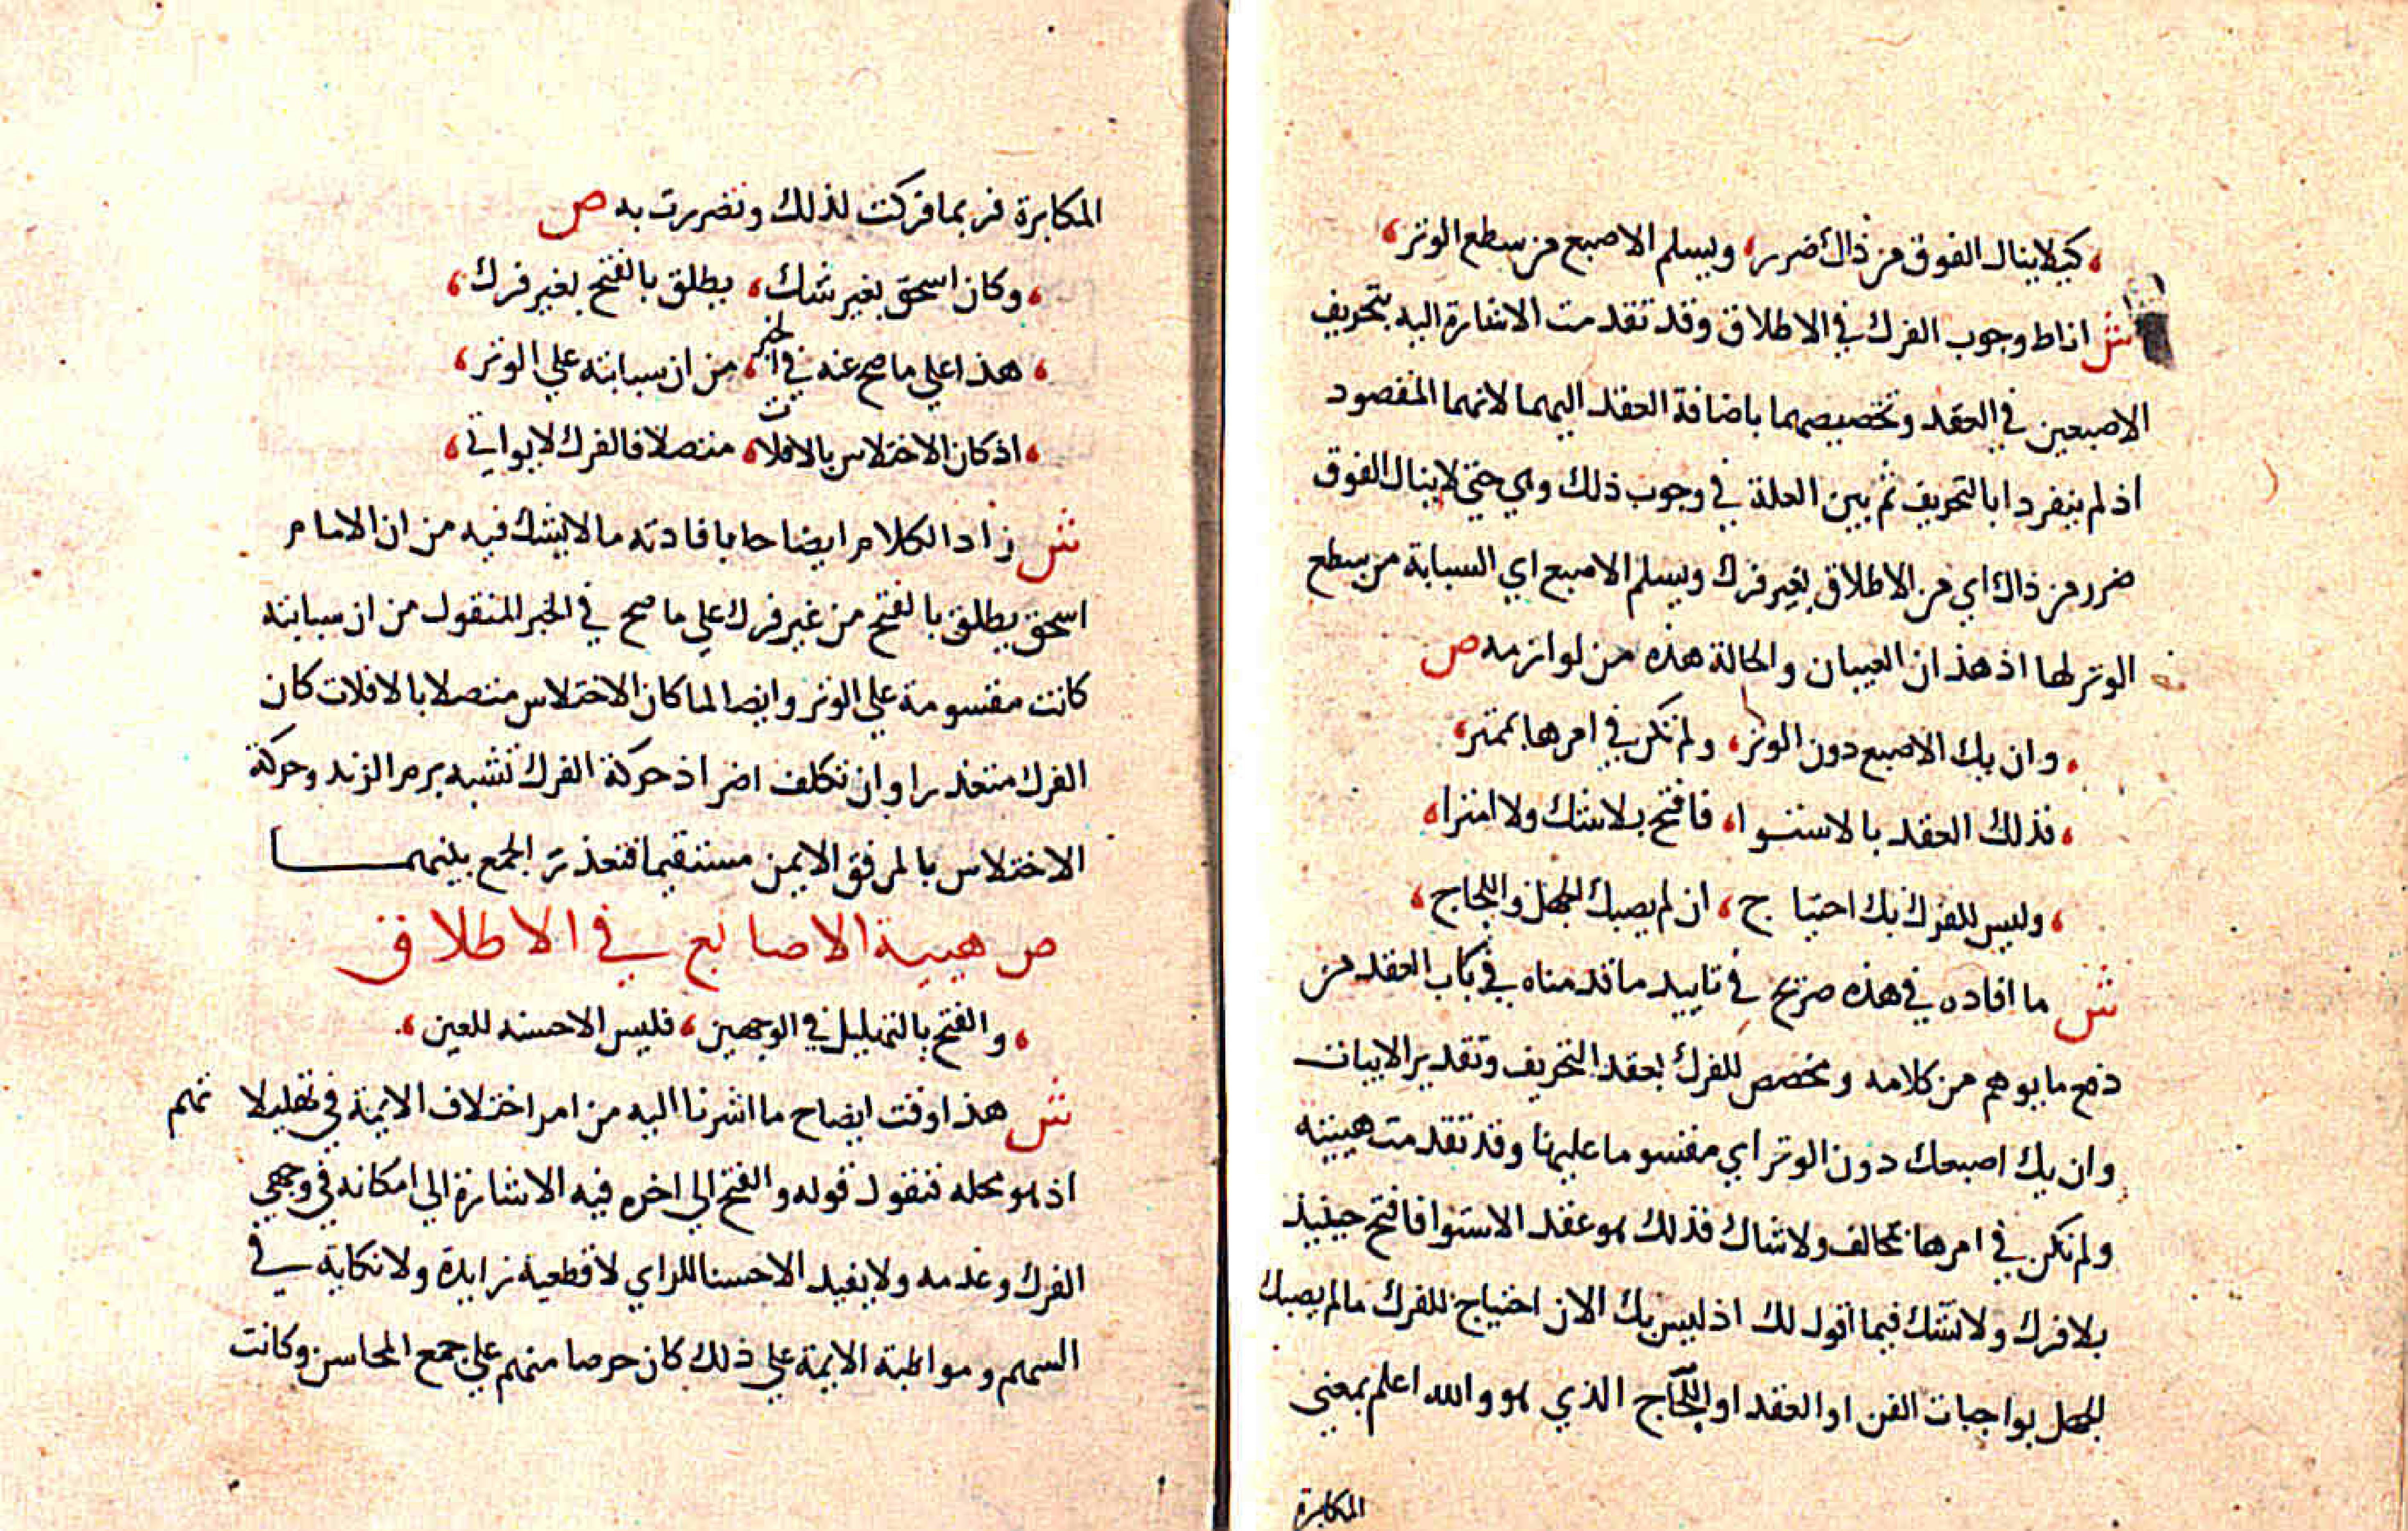 كيلا ينال الفوق من ذاك ضرر، ويسلم الاصبع من سطع الوتر،
ش اناط وجوب الفرك في الاطلاق وقد تقدمت الاشارة اليه بتحريف
الاصبعين في العقد وتخصيصهما باضافة العقد اليهما لانهما المقصود
اذ لم ينفردا بالتحريف ثم بين العلة في وجوب ذلك وهي حتى لا ينال الفوق
ضرر من ذاك اي من الاطلاق بغير فرك ويسلم الاصبع اي السبابة من سطع
الوتر لها اذ هذان العيبان والحالة هذه من لوازمه ص
وان يك الاصبع دون الوتر، ولم تكن في امرها بممتر،
فذلك العقد بالاستوا، فافتح بلا شك ولا امترا،
وليس للفرك بك احتياج، ان لم يصبك الجهل واللجاج،
ش ما افاده في هذه صريح في تاييد ما قدمناه في كتاب العقد من
دفع ما يوهم من كلامه وتخصص للفرك بعقد التحريف وتقدير الابيات
وان يك اصبعك دون الوتر اي مقسوما عليها وقد تقدمت هيئته
ولم تكن في امرها بمخالف ولا شاك فذلك هو عقد الاستوا فافتح حينيذ
بلا فرك ولا تشك فيما اقول لك اذ ليس بك الان احتياج للفرك ما لم يصبك
الجهل بواجبات الفن او العقد او اللجاج الذي هو والله اعلم بمعنى
المكابرة
المكابرة فربما فركت لذلك وتضررت به ص
وكان اسحق بغير شك، يطلق بالفتح بغير فرك،
هذا على ما صح عنه في الخبر، من ان سبابته على الوتر،
اذ كان الاختلاس بالافلات، متصلا فالفرك لا يواتي،
ش زاد الكلام ايضاحا بافادته ما لا يشك فيه من ان الامام
اسحق يطلق بالفتح من غير فرك على ما صح في الخبر المنقول من ان سبابته
كانت مقسومة على الوتر وايضا لما كان الاختلاس متصلا بالافلات كان
الفرك متعذرا وان تكلف اضر اذ حركة الفرك تشبه برم الزند وحركة
الاختلاس بالمرفق الايمن مستقيما فتعذر الجمع بينهما
ص هيية الاصابع في الاطلاق
والفتح بالتهليل في الوجهين، فليس الا حسنه للعين،
ش هذا وقت ايضاح ما اشرنا اليه من امر اختلاف الايمة في تهليلا تهم
اذ هو محله فنقول قوله والفتح الى اخره فيه الاشارة الى امكانه في وجهي
الفرك وعدمه ولا يفيد الا حسنا للراي لا قطعية زايدة ولا نكاية في
السهم ومواظبة الايمة على ذلك كان حرصا منهم على جمع المحاسن وكانت